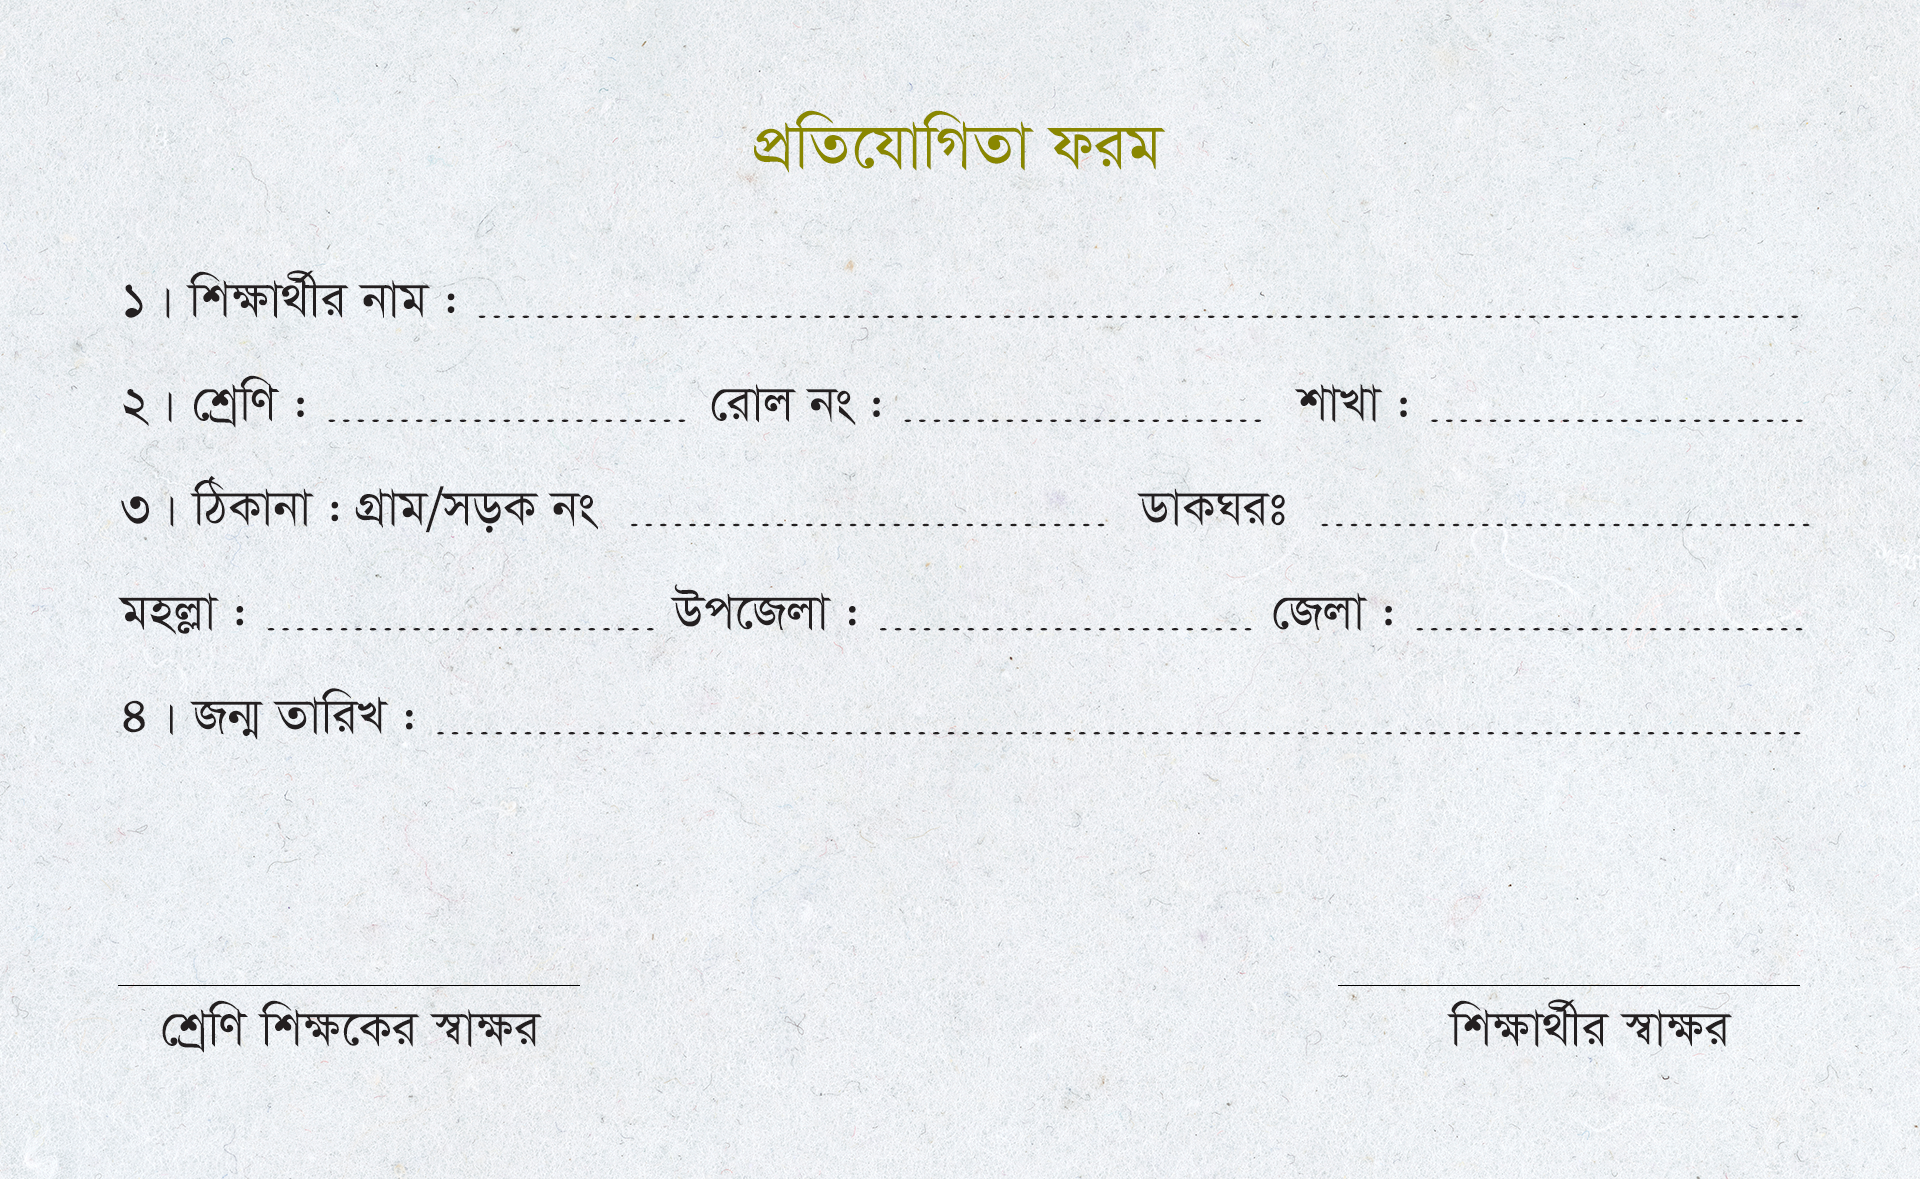 প্রতিযোগিতা ফরম
১। শিক্ষার্থীর নাম :
২। শ্রেণি : রোল নং : শাখা :
৩। ঠিকানা : গ্রাম/সড়ক নং ডাকঘরঃ
মহল্লা : উপজেলা : জেলা :
৪। জন্ম তারিখ :
শ্রেণি শিক্ষকের স্বাক্ষর শিক্ষার্থীর স্বাক্ষর